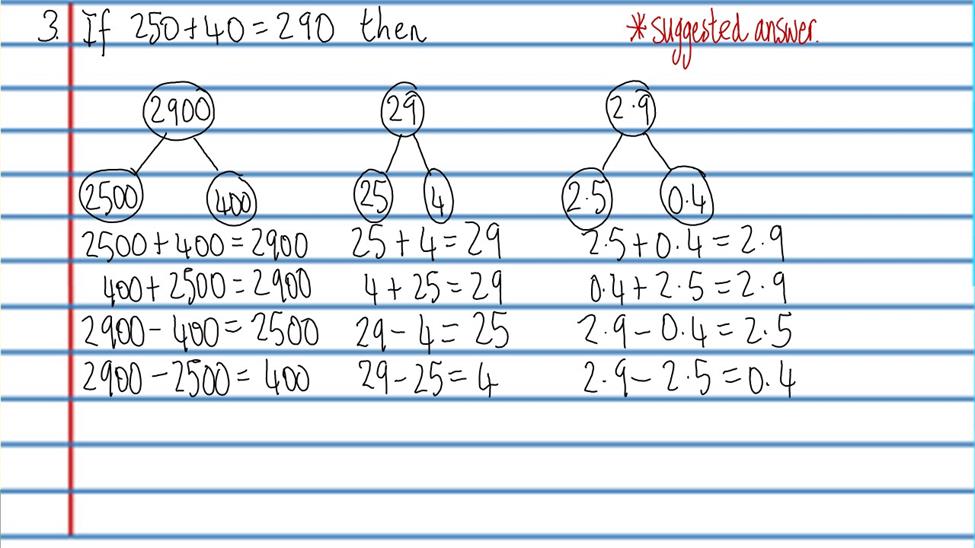 3. If 250+40=290 then *suggested answer.
2900 29 2.9
2500 400 25 4 2.5 0.4
2500+400=2900 25+4=29 2.5+0.4=2.9
400+2500=2900 4+25=29 0.4+2.5=2.9
2900-400=2500 29-4=25 2.9-0.4=2.5
2900-2500=400 29-25=4 2.9-2.5=0.4